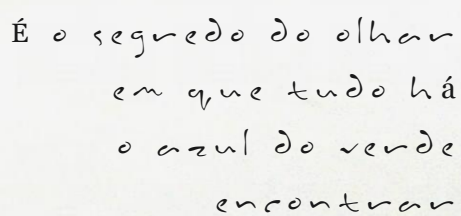 É o segredo do olhar
em que tudo há
o azul do verde
encontrar